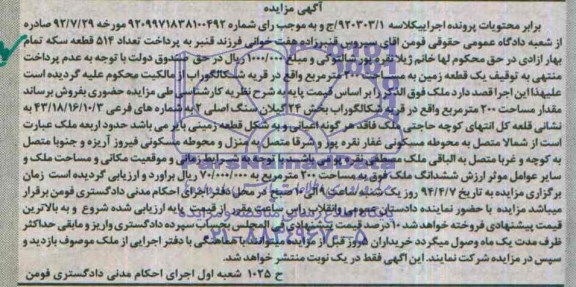 آگهی مزایده
برابر محتویات پرونده اجرایی کلاسه ۹۲۰۳۰۳/۱/ج و به موجب رای شماره ۹۲۰۹۹۷۱۸۳۸۱۰۰۴۹۲ مورخه ۹۲/۷/۲۹ صادره
از شعبه دادگاه عمومی حقوقی فومن اقای سیروس قنبرزاده هفت خوانی فرزند قنبر به پرداخت تعداد ۵۱۴ قطعه سکه تمام
بهار ازادی در حق محکوم لها خانم ژیلا نقره پور شالکوئی و مبلغ ۱/۰۰۰/۰۰۰ ریال در حق صندوق دولت با توجه به عدم پرداخت
منتهی به توقیف یک قطعه زمین به مساحت مترمربع واقع در قریه شکالگوراب از مالکیت محکوم علیه گردیده است
علیهذا این اجرا قصد دارد ملک فوق الذکر را بر اساس قیمت پایه به شرح نظریه کارشناسی طی مزایده حضوری بفروش برساند
مقدار مساحت ۲۰۰ مترمربع واقع در قریه شکالگوراب بخش ۲۴ گیلان سنگ اصلی ۲ به شماره های فرعی ۴۳/۱۸/۱۶/۱۰/۳ به
نشانی قلعه کل انتهای کوچه حاجتی ملک فاقد هر گونه اعیانی و به شکل قطعه زمینی بایر می باشد حدود اربعه ملک عبارت
است از شمالا متصل به محوطه مسکونی غفار نقره پور و شرقا متصل به منزل و محوطه مسکونی فیروز آریزه و جنوبا متصل
به کوچه و غربا متصل به الباقی ملک مصطفی نقره پور می باشد با توجه به شرایط زمانی و موقعیت مکانی و مساحت ملک و
سایر عوامل موثر ارزش ششدانگ ملک فوق به مساحت ۲۰۰ مترمربع به ۷۰/۰۰۰/۰۰۰ ریال براورد و ارزیابی گردیده است زمان
برگزاری مزایده به تاریخ ۹۴/۴/۷ روز یک شنبه ساعت ۹ الی ۱۰ صبح در محل دفتر اجرای احکام مدنی دادگستری فومن برقرار
میباشد مزایده با حضور نماینده دادستان عمومی وانقلاب در ساعت مقرر از قیمت پایه ارزیابی شده شروع و به بالاترین
قیمت پیشنهادی فروخته خواهد شد ۱۰ درصد قیمت پیشنهادی فی المجلس بحساب سپرده دادگستری واریز و مابقی حداکثر
ظرف مدت یک ماه وصول میگردد خریداران ۵ روز قبل از مزایده میتوانند با هماهنگی با دفتر اجرایی از ملک موصوف بازدید و
سپس در مزایده شرکت نمایند. این اگهی فقط در یک نوبت منتشر خواهد شد.
ح ۱۰۲۵ شعبه اول اجرای احکام مدنی دادگستری فومن